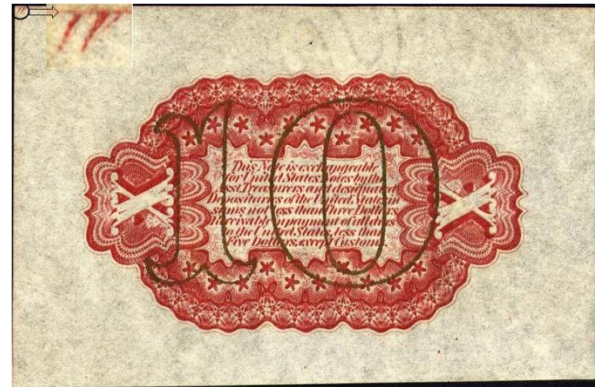 10
X
X
This Note is exchangeable
for United States Notes by the
Asst. Treasurers and designated
of the United States in
sums not less than five
Receivable in payment of all
to the United States less than
Five Dollars, except Customs